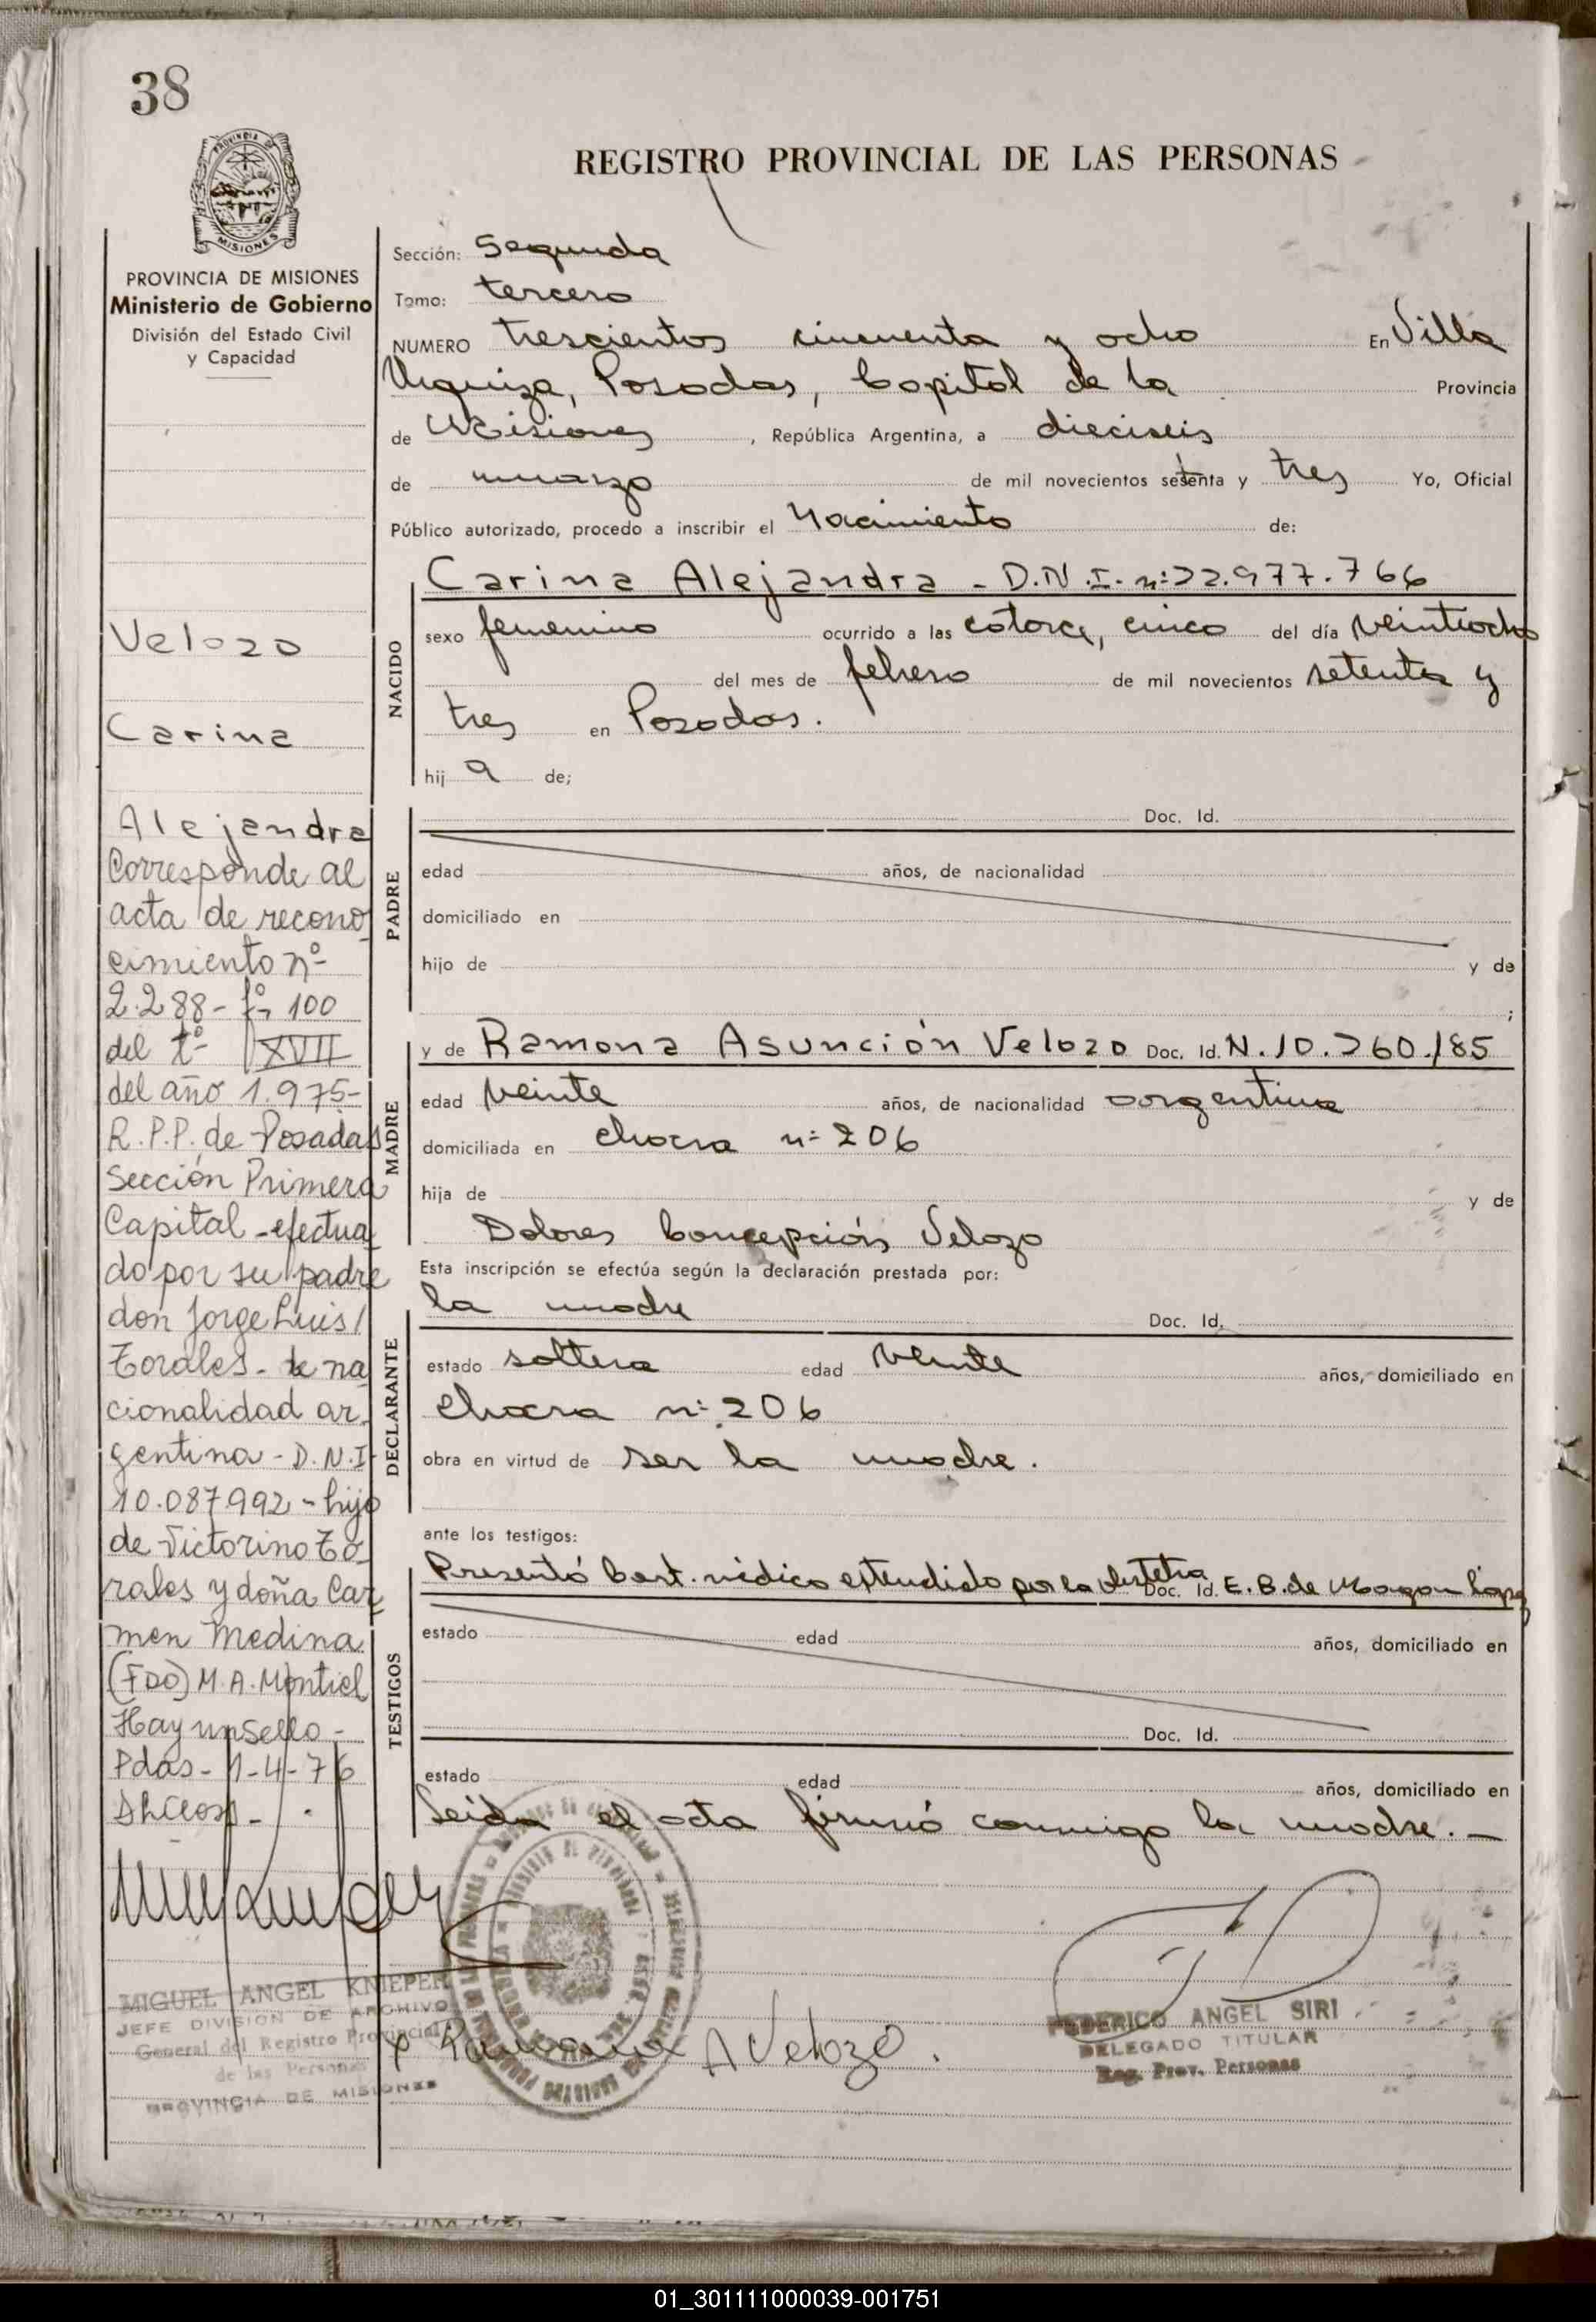 38
PROVINCIA DE
MISIONES
PROVINCIA DE MISIONES
Ministerio de Gobierno
División del Estado Civil
y Capacidad
Velozo
Carina
Alejandra
Corresponde al
acta de recono
cimiento nº
2.288 - fº 100
del tº XVII
del año 1.975-
R.P.P. de Posadas
Sección Primera
Capital - efectua
do por su padre
don Jorge Luis/
Torales - de na
cionalidad ar
gentina - D.N.I
10.087.992 - hijo
de Victorino To
rales y doña Car
men Medina
(FDO) M.A. Montiel
Hay un Sello -
Pdas - 1-4-76
MIGUEL ANGEL KNIEPER
JEFE DIVISION DE ARCHIVO
General del Registro Provincial
de las Personas
PROVINCIA DE MISIONES
REGISTRO PROVINCIAL DE LAS PERSONAS
Sección: Segunda
Tomo: tercero
NUMERO trescientos cincuenta y ocho En Villa
Urquiza, Posadas, Capital de la Provincia
de Misiones, República Argentina, a dieciseis
de marzo de mil novecientos setenta y tres Yo, Oficial
Público autorizado, procedo a inscribir el Nacimiento de:
NACIDO
Carina Alejandra - D.N.I. nº 22.977.766
sexo femenino ocurrido a las catorce, cinco del día veintiocho
del mes de febrero de mil novecientos setenta y
tres en Posadas.
hij a de;
PADRE
Doc. Id.
edad años, de nacionalidad
domiciliado en
hijo de y de
;
MADRE
y de Ramona Asunción Velozo Doc. Id. N. 10.260.185
edad veinte años, de nacionalidad argentina
domiciliada en chacra nº 206
hija de y de
Dolores Concepción Velozo
Esta inscripción se efectúa según la declaración prestada por:
DECLARANTE
la madre Doc. Id.
estado soltera edad veinte años, domiciliado en
chacra nº 206
obra en virtud de ser la madre.
ante los testigos:
TESTIGOS
Presentó Cert. médico extendido por la obstetra Doc. Id. E. B. de
estado edad años, domiciliado en
Doc. Id.
estado edad años, domiciliado en
Leida el acta firmó conmigo la madre. -
Ramona A Velozo.
FEDERICO ANGEL SIRI
DELEGADO TITULAR
Reg. Prov. Personas
01_301111000039-001751